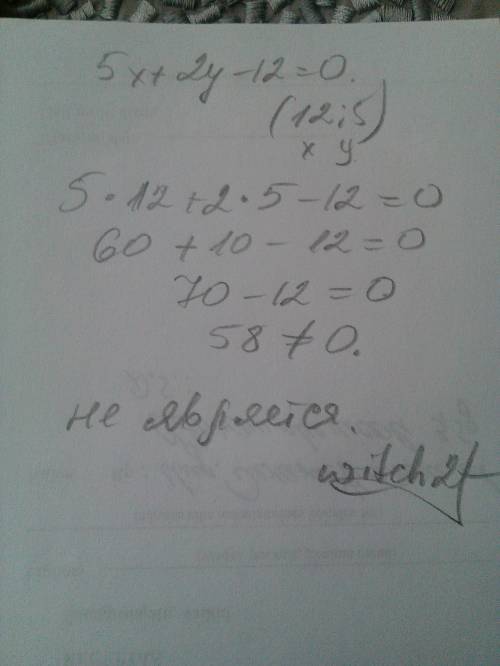 5x + 2y - 12 = 0.
(12;5)
x y
5·12 + 2·5 - 12 = 0
60 + 10 - 12 = 0
70 - 12 = 0
58 ≠ 0.
не является.